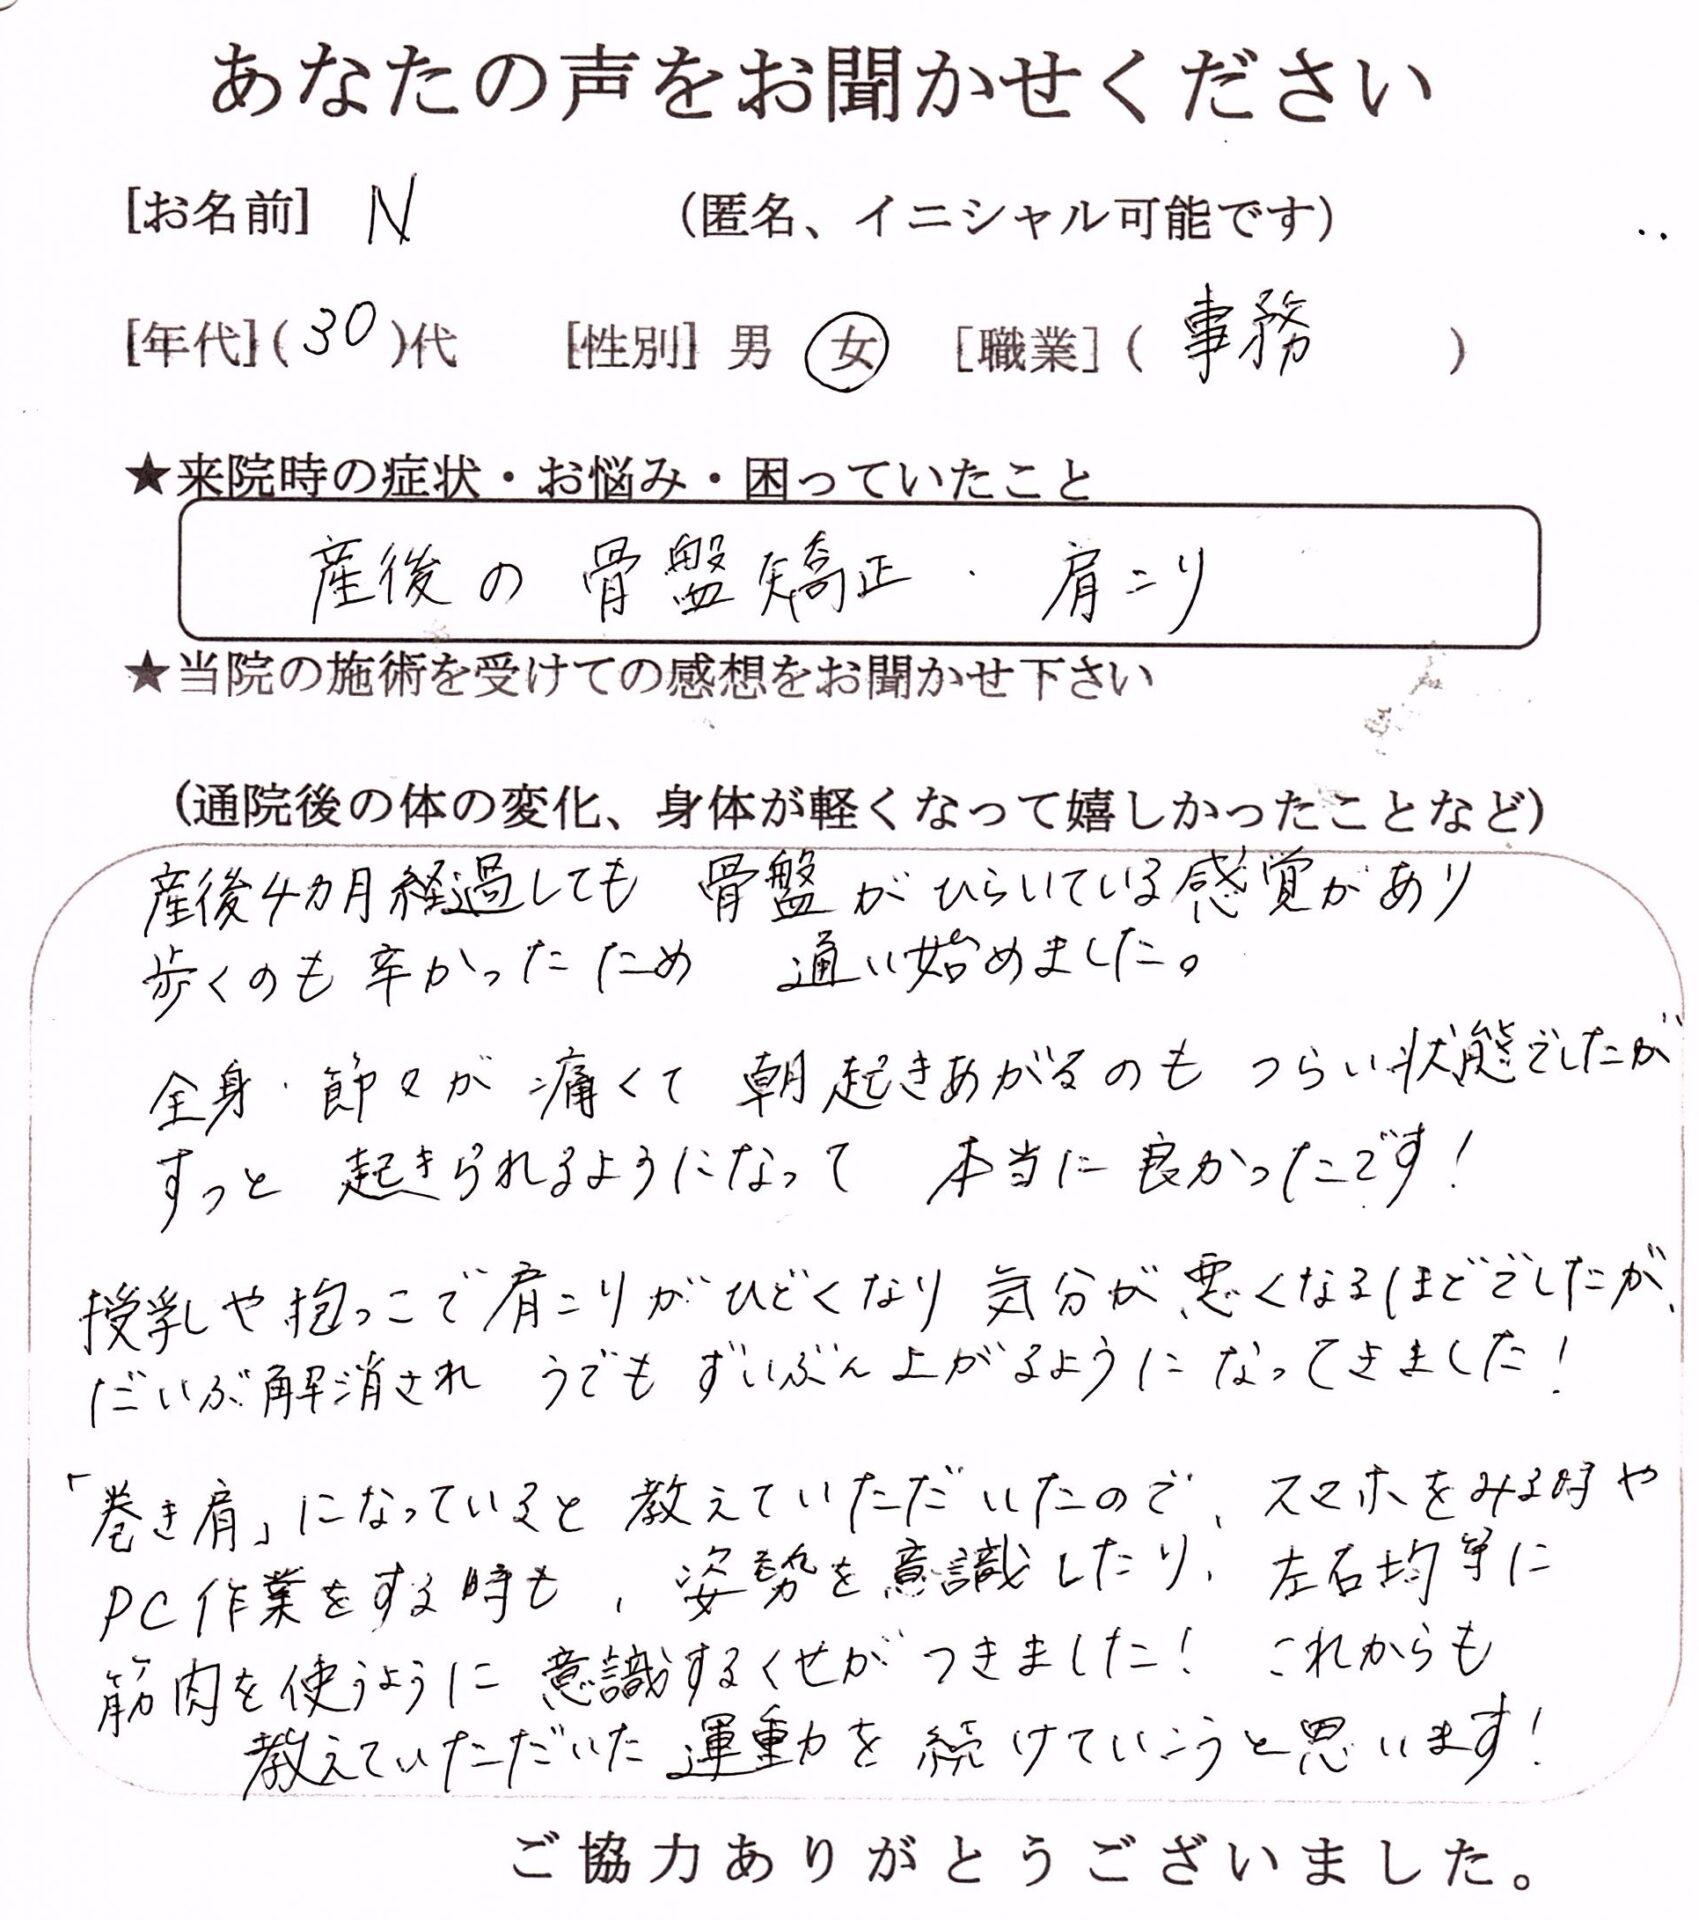 あなたの声をお聞かせください
[お名前] N (匿名、イニシャル可能です)
[年代](30)代 [性別] 男 女 [職業] (事務)
★来院時の症状・お悩み・困っていたこと
産後の骨盤矯正・肩こり
★当院の施術を受けての感想をお聞かせ下さい
(通院後の体の変化、身体が軽くなって嬉しかったことなど)
産後4カ月経過しても 骨盤がひらいている感覚があり
歩くのも辛かったため 通い始めました。
全身・節々が痛くて 朝起きあがるのも つらい状態でしたが
すっと 起きられるようになって 本当に良かったです!
授乳しや抱っこで肩こりがひどくなり 気分が悪くなるほどでしたが、
だいぶ解消され うでも ずいぶん上がるようになってきました!
「巻き肩」になっていると 教えていただいたので、スマホをみる時や
PC作業をする時も、姿勢を意識したり、左右均等に
筋肉を使うように 意識するくせがつきました! これからも
教えていただいた 運動を続けていこうと思います!
ご協力ありがとうございました。